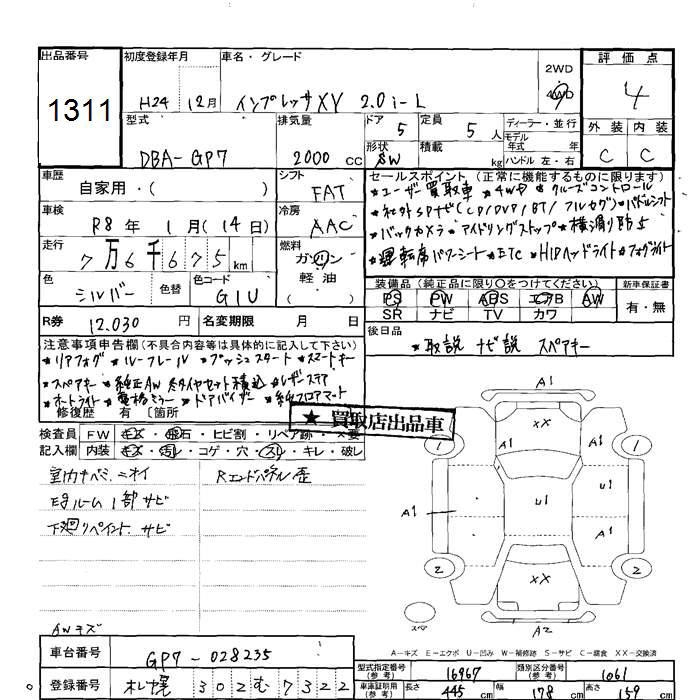 出品番号
1311
初度登録年月
H24 12月
車名・グレード
インプレッサXV 2.0i-L
2WD
4WD
評 価 点
4
外 装 内 装
C C
型式
DBA-GP7
排気量
2000 CC
ドア 5
形状 SW
定員 5 人
積載 kg
ディーラー・並行
モデル年式 年式
ハンドル 左・右
車歴
自家用・( )
シフト
FAT
車検
R8年 1月(14日)
冷房
AAC
走行
7万6千675 km
燃料
ガソリン
軽 油
色
シルバー
色替
色コード
G1U
R券 12.030 円
名変期限 月 日
セールスポイント (正常に機能するものに限ります)
★ユーザー買取車 ★4WD ★クルーズコントロール
★社外SDナビ(CD/DVD/BT/フルセグ) ★パドルシフト
★バックカメラ ★アイドリングストップ ★横滑り防止
★運転席パワーシート ★ETC ★HIDヘッドライト ★フォグライト
装備品(純正品に限り○をつけてください)
新車保証書
PS PW ABS エアB AW
SR ナビ TV カワ
有・無
後日品
★取説 ナビ説 スペアキー
注意事項申告欄(不具合内容等は具体的に記入して下さい)
★リアフォグ ★ルーフレール ★プッシュスタート ★スマートキー
★スペアキー ★純正AW 冬タイヤセット積込 ★レザーステア
★オートライト ★電格ミラー ★ドアバイザー ★純フロアマット
修復歴 有 〔箇所
★ 買取店出品車
検査員
記入欄
FW キズ・飛石・ヒビ割・リペア跡・X要
内装 キズ・汚レ・コゲ・穴・スレ・キレ・破レ
室内ナベミ、ニオイ
Rエンドパネル歪
Eルーム1部サビ
下廻リペイント、サビ
AWキズ
A1
XX
1
A1
A1
1
A1
U1
U1
A1
2
XX
2
A2
スペア
A-キズ E-エクボ U-凹み W-補修跡 S-サビ C-腐食 XX-交換済
車台番号
GP7-028235
登録番号
札幌 302 む 7322
型式指定番号
(参考)
16967
類別区分番号
(参考)
1061
車庫証明用
(参考)
長さ 445 cm
幅 178 cm
高さ 159 cm